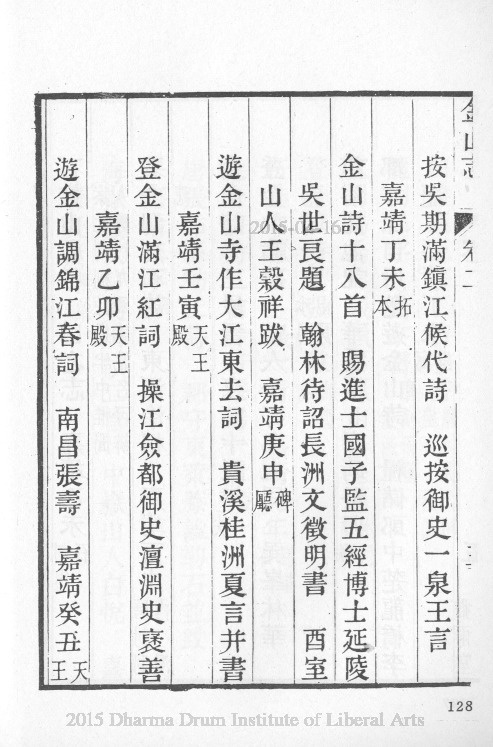 金山志 卷二
按吳期滿鎮江候代詩 巡按御史一泉王言
嘉靖丁未拓本
金山詩十八首 賜進士國子監五經博士延陵
吳世良題 翰林待詔長洲文徵明書 酉室
山人王穀祥跋 嘉靖庚申碑廳
遊金山寺作大江東去詞 貴溪桂洲夏言并書
嘉靖壬寅天王殿
登金山滿江紅詞 操江僉都御史澶淵史襃善
嘉靖乙卯天王殿
遊金山調錦江春詞 南昌張壽 嘉靖癸丑天王
128
2015-02-16
2015 Dharma Drum Institute of Liberal Arts